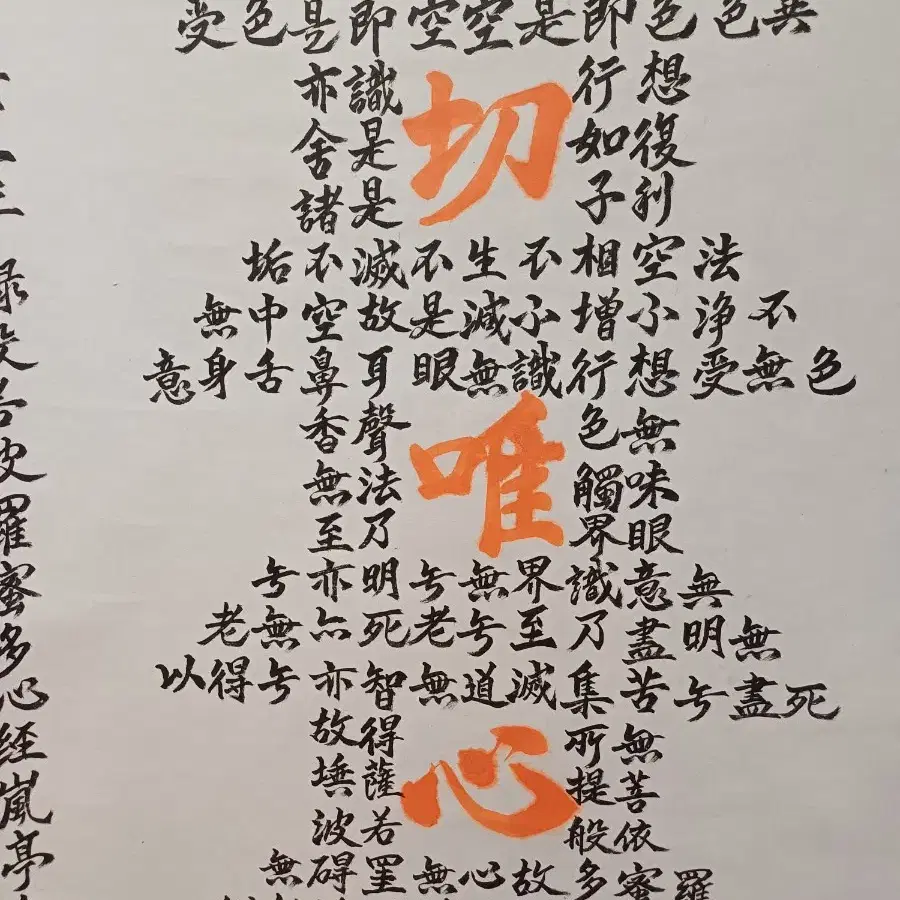 異色色即是空空即是色受
想行識亦
復如是舍
利子是諸
切
法空相不生不滅不垢
不浄小增小減是故空中無
色無受想行識無眼耳鼻舌身意
無色聲香
味觸法無
眼界乃至
唯
無意識界無无明亦无
無明盡乃至无老死亦無老
死盡无苦集滅道無智亦无得以
無所得故
菩提薩埵
依般若波
心
羅蜜多故心無罣碍無
波羅蜜多心经嵐亭